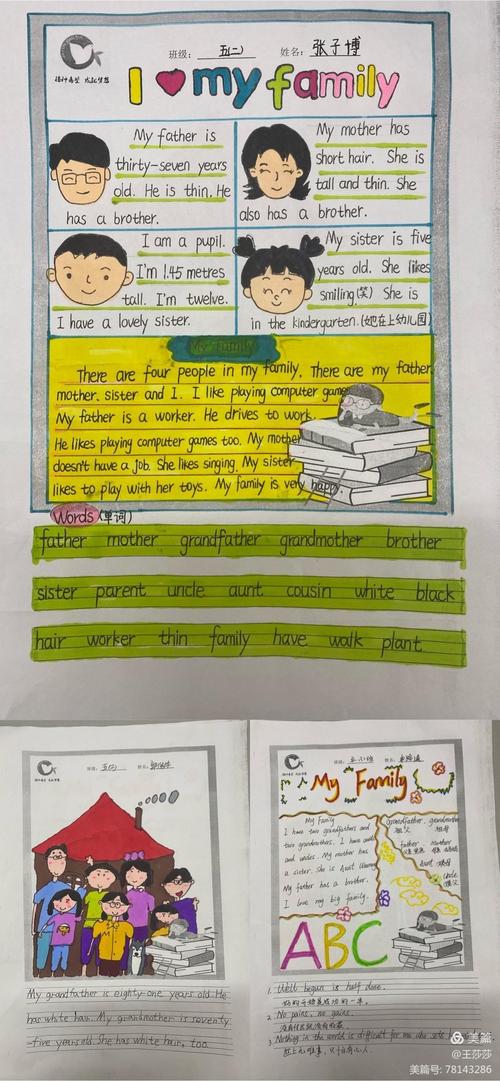 班级: 五(二) 姓名: 张子博
I my family
My father is
thirty-seven years
old. He is thin. He
has a brother.
My mother has
short hair. She is
tall and thin. She
also has a brother.
I am a pupil.
I'm 1.45 metres
tall. I'm twelve.
I have a lovely sister.
My sister is five
years old. She likes
smiling.(笑) She is
in the kindergarten.(她在上幼儿园)
My Family
There are four people in my family. There are my father,
mother, sister and I. I like playing computer game
My father is a worker. He drives to work.
He likes playing computer games too. My mother
doesn't have a job. She likes singing. My sister
likes to play with her toys. My family is very happy.
Words (单词)
father mother grandfather grandmother brother
sister parent uncle aunt cousin white black
hair worker thin family have walk plant
班级: 五(二) 姓名:
My grandfather is eighty-one years old. He
has white hair. My grandmother is seventy
-five years old. She has white hair, too.
班级: 姓名:
My Family
My Family
I have two grandfathers and
two grandmothers. I have aunts
and uncles. My mother has
a sister. She is Aunt
My father has a brother.
I love my big family.
grandfather, grandmother
祖父 祖母
father mother
Aunt
Uncle
ABC
1. Well begun is half done.
好的开始是成功的一半.
2. No pains, no gains.
没有付出就没有收获.
3. Nothing in the world is difficult for me who sets
世上无难事, 只怕有心人.
美篇
@王莎莎
美篇号: 78143286